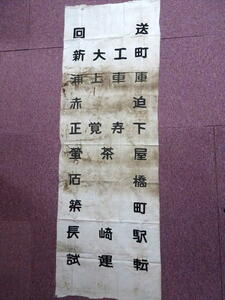 回送
新大工町
浦上車庫
赤迫
正覚寺下
螢茶屋
石橋
築町
長崎駅
試運転